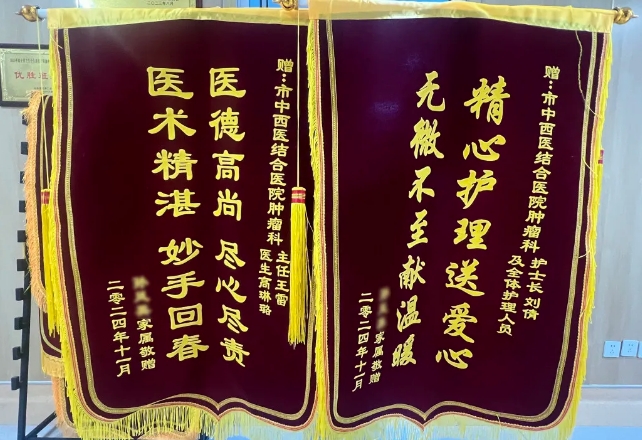 赠：市中西医结合医院肿瘤科
主任王雷
医生高琳璐
医德高尚 尽心尽责
医术精湛 妙手回春
家属敬赠
二零二四年十一月
赠：市中西医结合医院肿瘤科
护士长刘倩
及全体护理人员
精心护理送爱心
无微不至献温暖
家属敬赠
二零二四年十一月